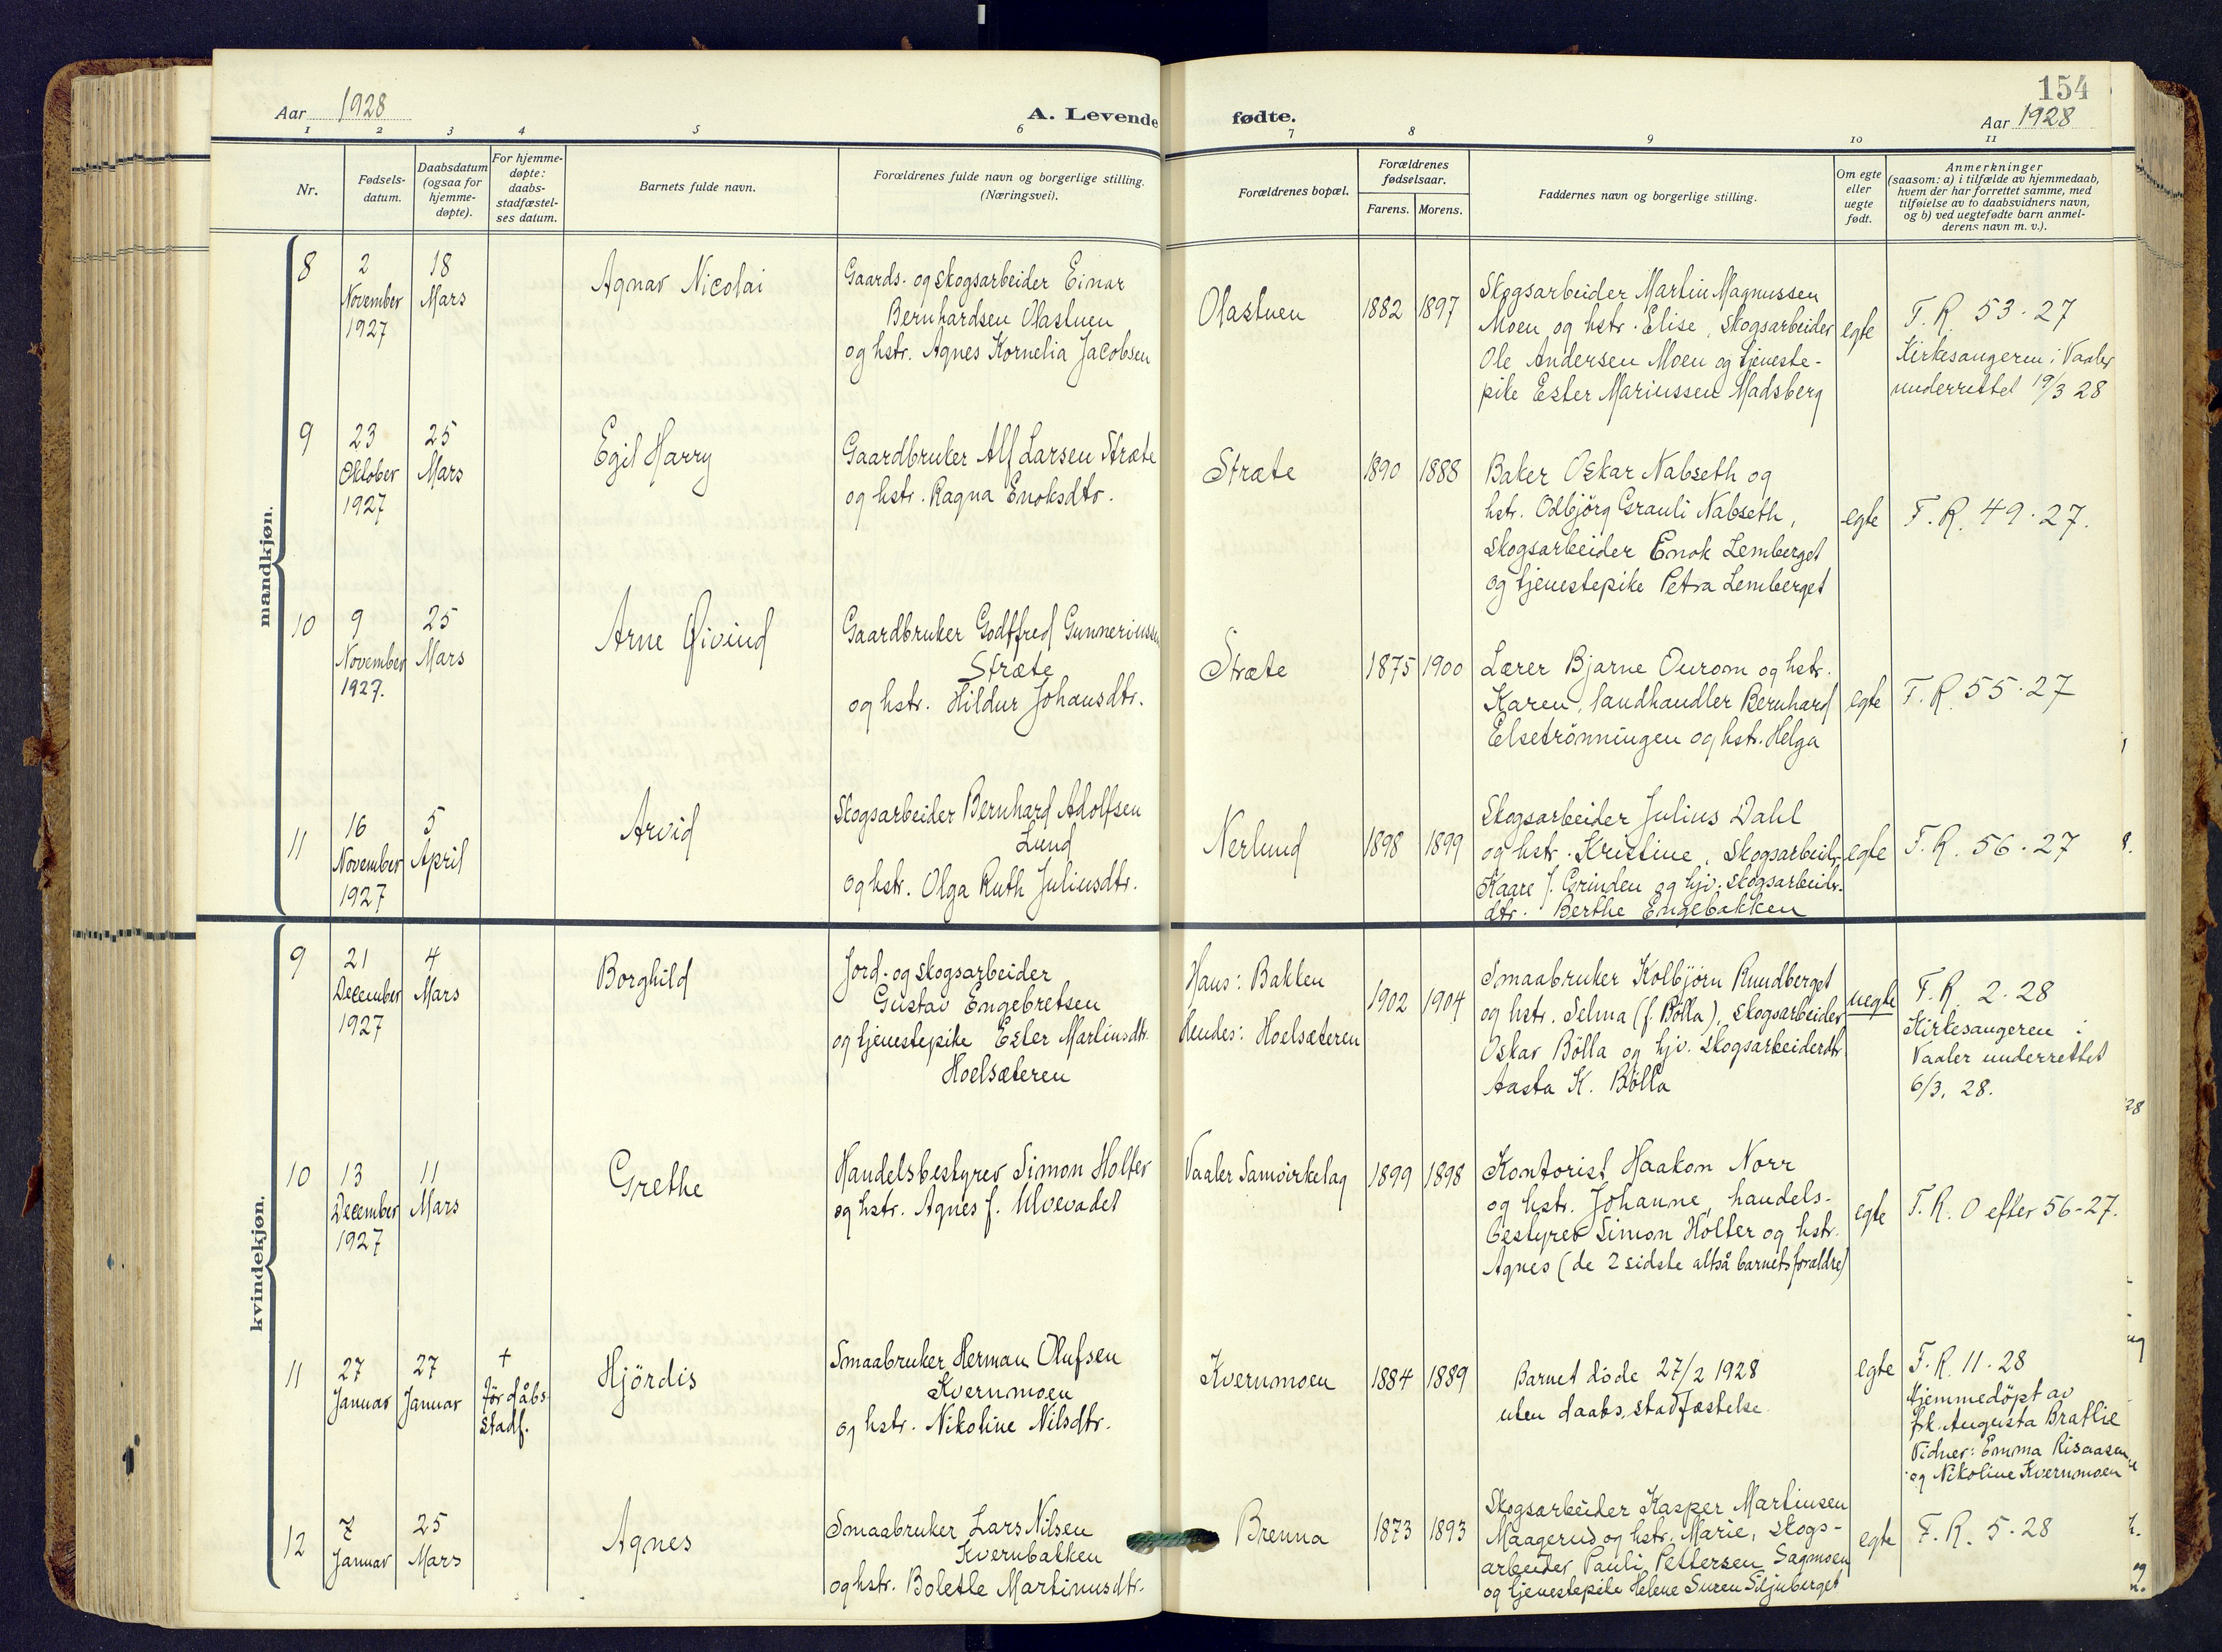 154
Aar 1928
A. Levende fødte.
Aar 1928
1 2 3 4 5 6 7 8 9 10 11
Nr.
Fødsels-
datum.
Daabsdatum
(ogsaa for
hjemme-
døpte).
For hjemme-
døpte:
daabs-
stadfæstel-
ses datum.
Barnets fulde navn.
Forældrenes fulde navn og borgerlige stilling.
(Næringsvei).
Forældrenes bopæl.
Forældrenes
fødselsaar.
Farens. Morens.
Faddernes navn og borgerlige stilling.
Om egte
eller
uegte
født.
Anmerkninger
(saasom: a) i tilfælde av hjemmedaab,
hvem der har forrettet samme, med
tilføielse av to daabsvidners navn,
og b) ved uegtefødte barn anmel-
derens navn m. v.).
mandkjøn.
8
2
November
1927
18
Mars
Agnar Nicolai
Gaards- og skogsarbeider Einar
Bernhardsen Olastuen
og hstr. Agnes Kornelia Jacobsen
Olastuen
1882
1897
Skogsarbeider Martin Magnussen
Moen og hstr. Elise, skogsarbeider
Ole Andersen Moen og tjeneste-
pike Ester Mariussen Madsberg
egte
F. R. 53·27
Kirkesangeren i Vaaler
underrettet 19/3 28
9
23
Oktober
1927
25
Mars
Egil Harry
Gaardbruker Alf Larsen Stræte
og hstr. Ragna Enoksdtr.
Stræte
1890
1888
Baker Oskar Nabseth og
hstr. Odbjörg Grauli Nabseth,
skogsarbeider Enok Lemberget
og tjenestepike Petra Lemberget
egte
F. R. 49·27.
10
9
November
1927.
25
Mars
Arne Øivind
Gaardbruker Godtfred Gunneriussen
Stræte
og hstr. Hildur Johansdtr.
Stræte
1875
1900
Lærer Bjarne Ourom og hstr.
Karen, landhandler Bernhard
Elsetrönningen og hstr. Helga
egte
F. R. 55·27
11
16
November
1927
5
April
Arvid
Skogsarbeider Bernhard Adolfsen
Lund
og hstr. Olga Ruth Juliusdtr.
Nerlund
1898
1899
Skogsarbeider Julius Dahl
og hstr. Kristine, skogsarbeidr.
Kaare J. Grinden og hjv. skogsarbeidr.
dtr. Berthe Engebakken
egte
F. R. 56·27
kvindekjøn.
9
21
December
1927
4
Mars
Borghild
Jord- og skogsarbeider
Gustav Engebretsen
og tjenestepike Ester Martinsdtr.
Hoelsæteren
Hans: Bakken
Hendes: Hoelsæteren
1902
1904
Smaabruker Kolbjörn Rundberget
og hstr. Selma (f. Bölla), skogsarbeider
Oskar Bölla og hjv. skogsarbeiderdtr.
Aasta K. Bölla
uegte
F. R. 2·28
Kirkesangeren i
Vaaler underrettet
6/3. 28.
10
13
December
1927
11
Mars
Grethe
Handelsbestyrer Simon Holter
og hstr. Agnes f. Ulvevadet
Vaaler Samvirkelag
1899
1898
Kontorist Haakon Norr
og hstr. Johanne, handels-
bestyrer Simon Holter og hstr.
Agnes (de 2 sidste altså barnets forældre)
egte
F. R. 0 efter 56-27.
11
27
Januar
27
Januar
†
för dåbs-
stadf.
Hjördis
Smaabruker Herman Olufsen
Kvernmoen
og hstr. Nikoline Nilsdtr.
Kvernmoen
1884
1889
Barnet döde 27/2 1928
uten daabs, stadfæstelse.
egte
F. R. 11·28
Hjemmedöpt av
frk. Augusta Bratlie
Vidner: Emma Risaasen
og Nikoline Kvernmoen
12
7
Januar
25
Mars
Agnes
Smaabruker Lars Nilsen
Kvernbakken
og hstr. Bolette Martinusdtr.
Brenna
1873
1893
Skogsarbeider Kasper Martinsen
Maagerud og hstr. Marie, skogs-
arbeider Pauli Pettersen Sagmoen
og tjenestepike Helene Suren Siljuberget
egte
F. R. 5·28